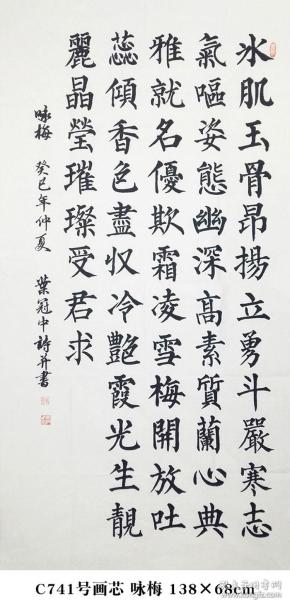 冰肌玉骨昂揚立勇斗嚴寒志
氣嘔姿態幽深高素質蘭心典
雅就名優欺霜凌雪梅開放吐
蕊傾香色盡收冷艷霞光生靚
麗晶瑩璀璨受君求
咏梅 癸巳年仲夏 葉冠中詩并書
C741号画芯 咏梅 138×68cm